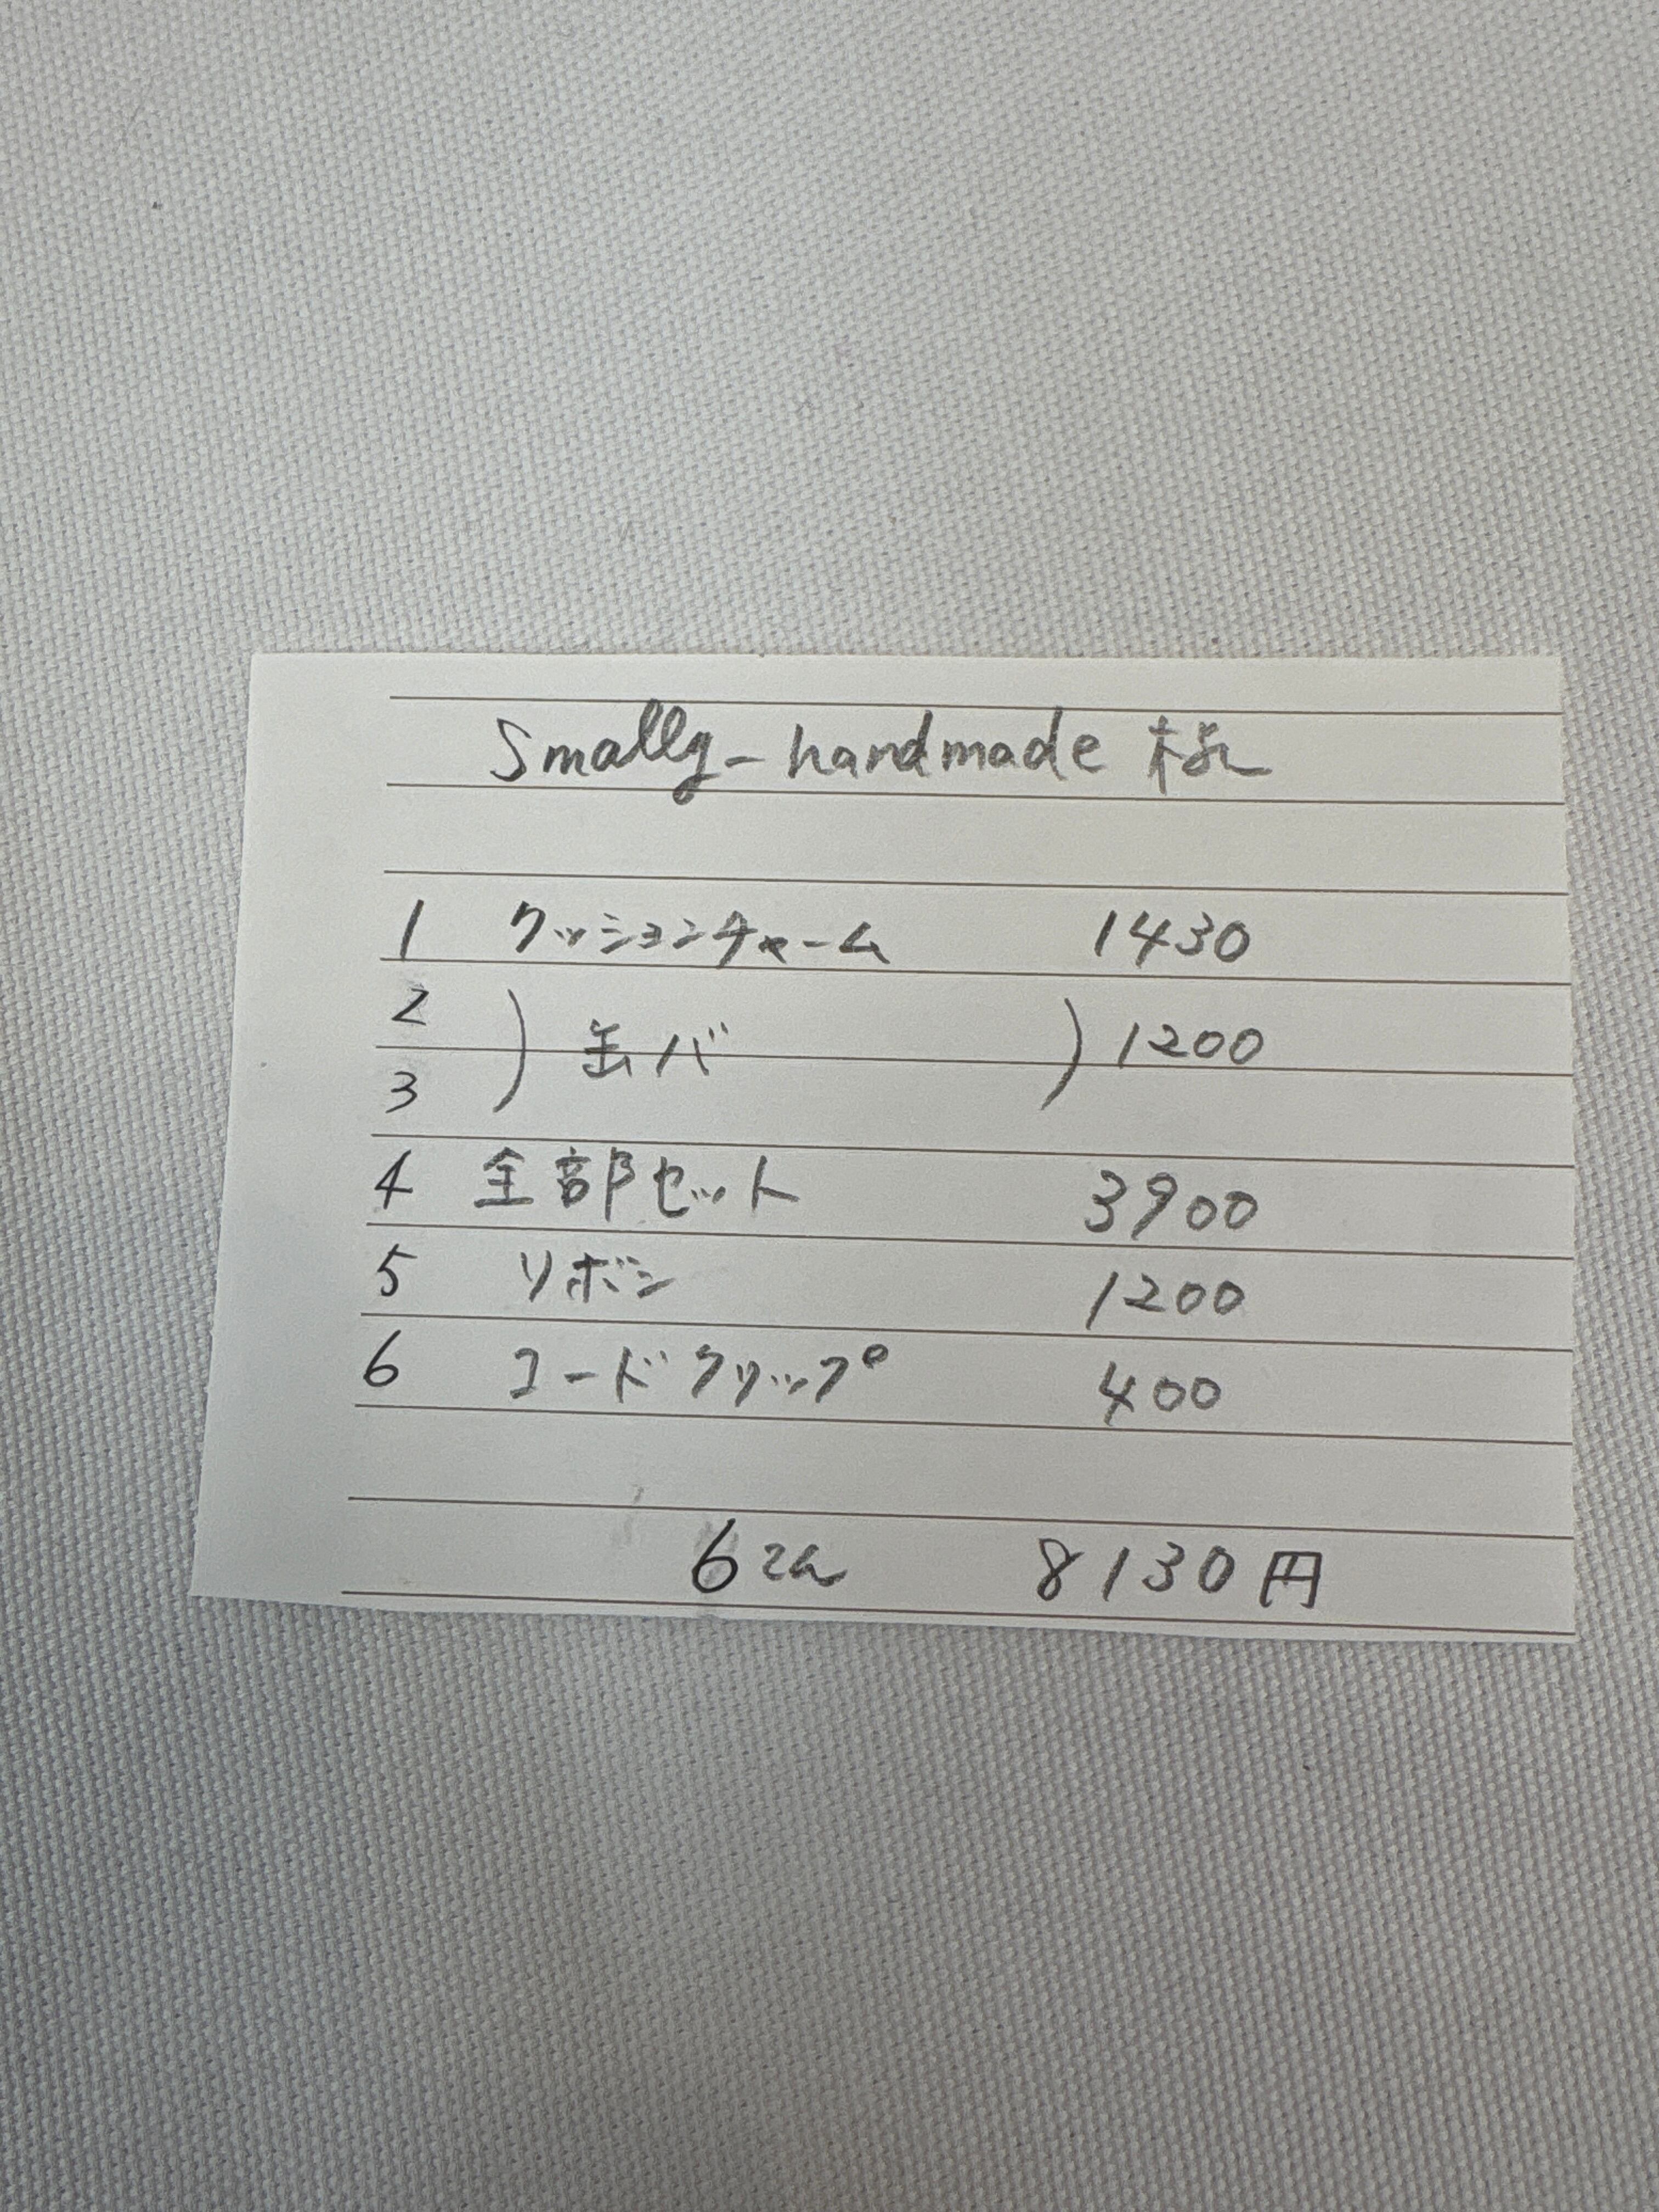 Smally-handmade 様
1 クッションチャーム 1430
2
) 缶バ ) 1200
3
4 全部セット 3900
5 リボン 1200
6 コードクリップ 400
6こん 8130円